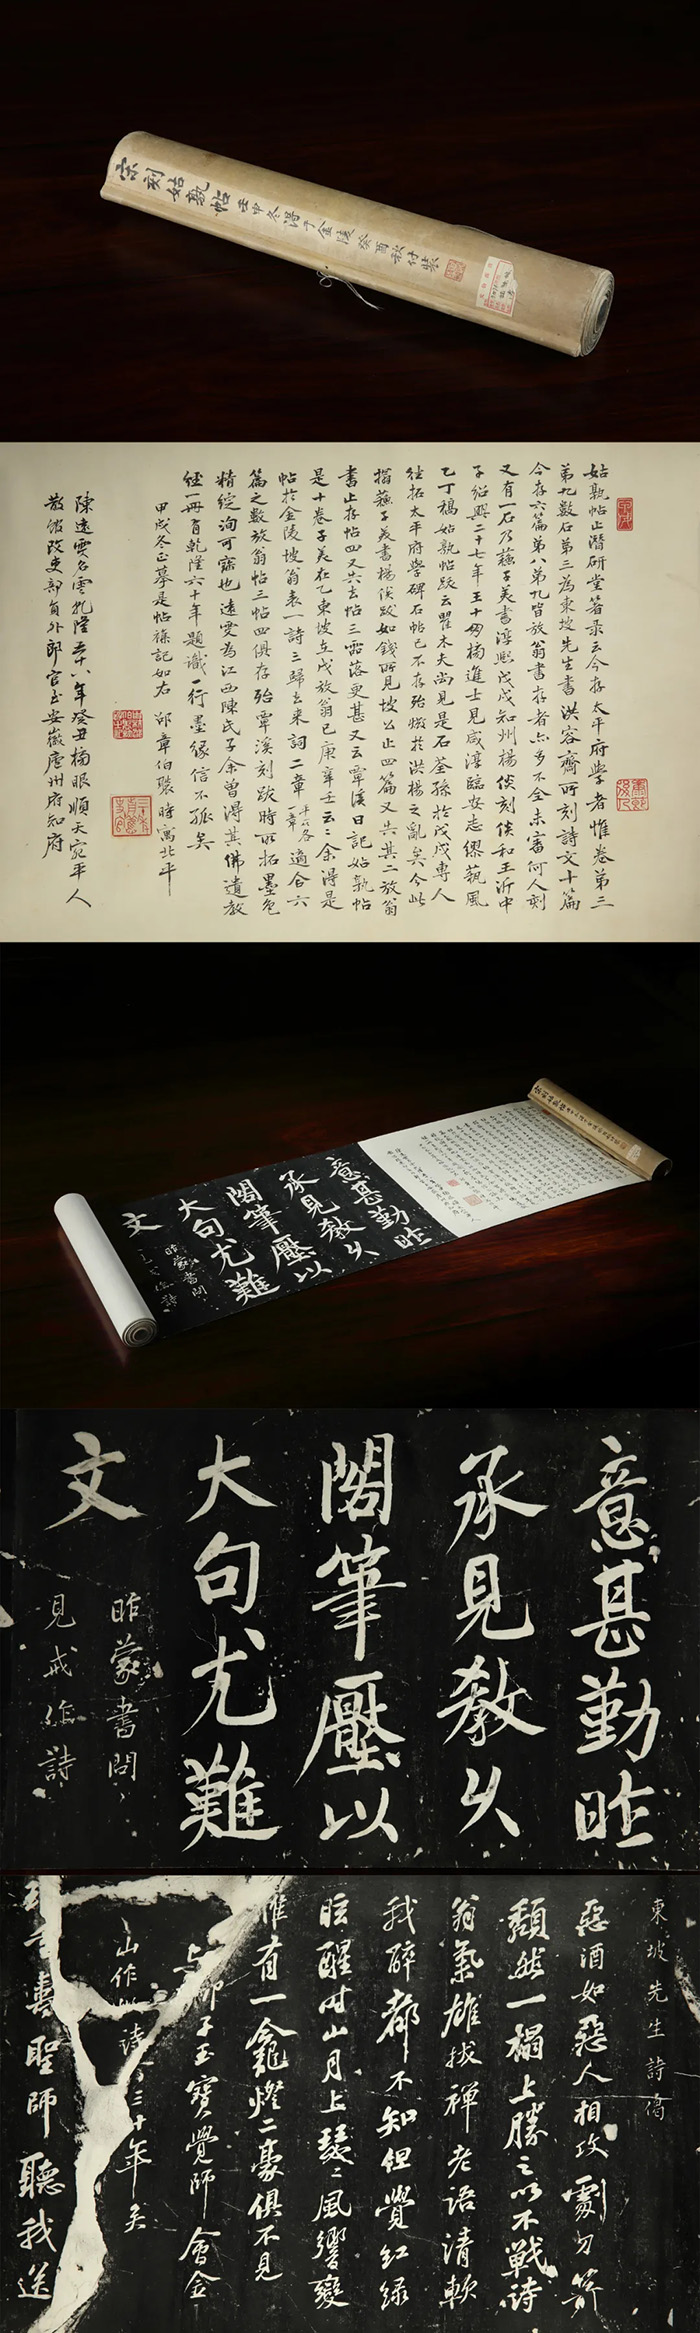 宋刻姑孰帖 壬申冬得于金陵癸酉秋付裝
姑孰帖止潛研堂著录云今存太平府學者惟卷第三
第九數石第三為東坡先生書洪容齋所刻詩文十篇
今存六篇第八第九皆放翁書存者亦多不全未審何人刻
又有一石乃蘇子美書淳熙戊戌知州楊倓刻倓和王沂中
子紹興二十七年王十朋榜進士見咸淳臨安志繆藝風
乙丁稿姑孰帖跋云瞿木夫尚見是石荃孫於戊戌專人
往拓太平府學碑石帖已不存殆燬於洪楊之亂矣今此
搨蘇子美書楊倓跋如錢所見坡公止四篇又失其二放翁
書止存帖四又失去帖三零落更甚又云覃溪日記姑孰帖
是十卷子美在乙東坡在戊放翁己庚辛壬云云余得是
帖於金陵坡翁表一詩三歸去来詞二章 適合六
篇之數放翁帖三帖四俱存殆覃溪刻跋時所拓墨色
精綻洵可寳也遠雯為江西陳氏子余曾得其佛遺教
經一冊有乾隆六十年題識一行墨緣信不孤矣
甲戌冬正摹是帖褾記如右 邵章伯褧時寓北平
陳遠雯名雲乾隆五十八年癸丑榜眼順天宛平人
散館改吏部員外郎官至安徽廬州府知府
意甚勤昨
承見教以
閣筆壓以
大句尤難
文
昨蒙書問
見戒作詩
意甚勤昨
承見教以
閣筆壓以
大句尤難
文
昨蒙書問
見戒作詩
東坡先生詩偈
惡酒如惡人相攻劇刀箭
頹然一榻上勝之以不戰詩
翁氣雄拔禪老語清軟
我醉都不知但覺紅綠
眩醒時山月上瑟瑟風響變
惟有一龕燈二豪俱不見
與柳子玉寶覺師會金
山作此詩今三十年矣
聖師聽我送